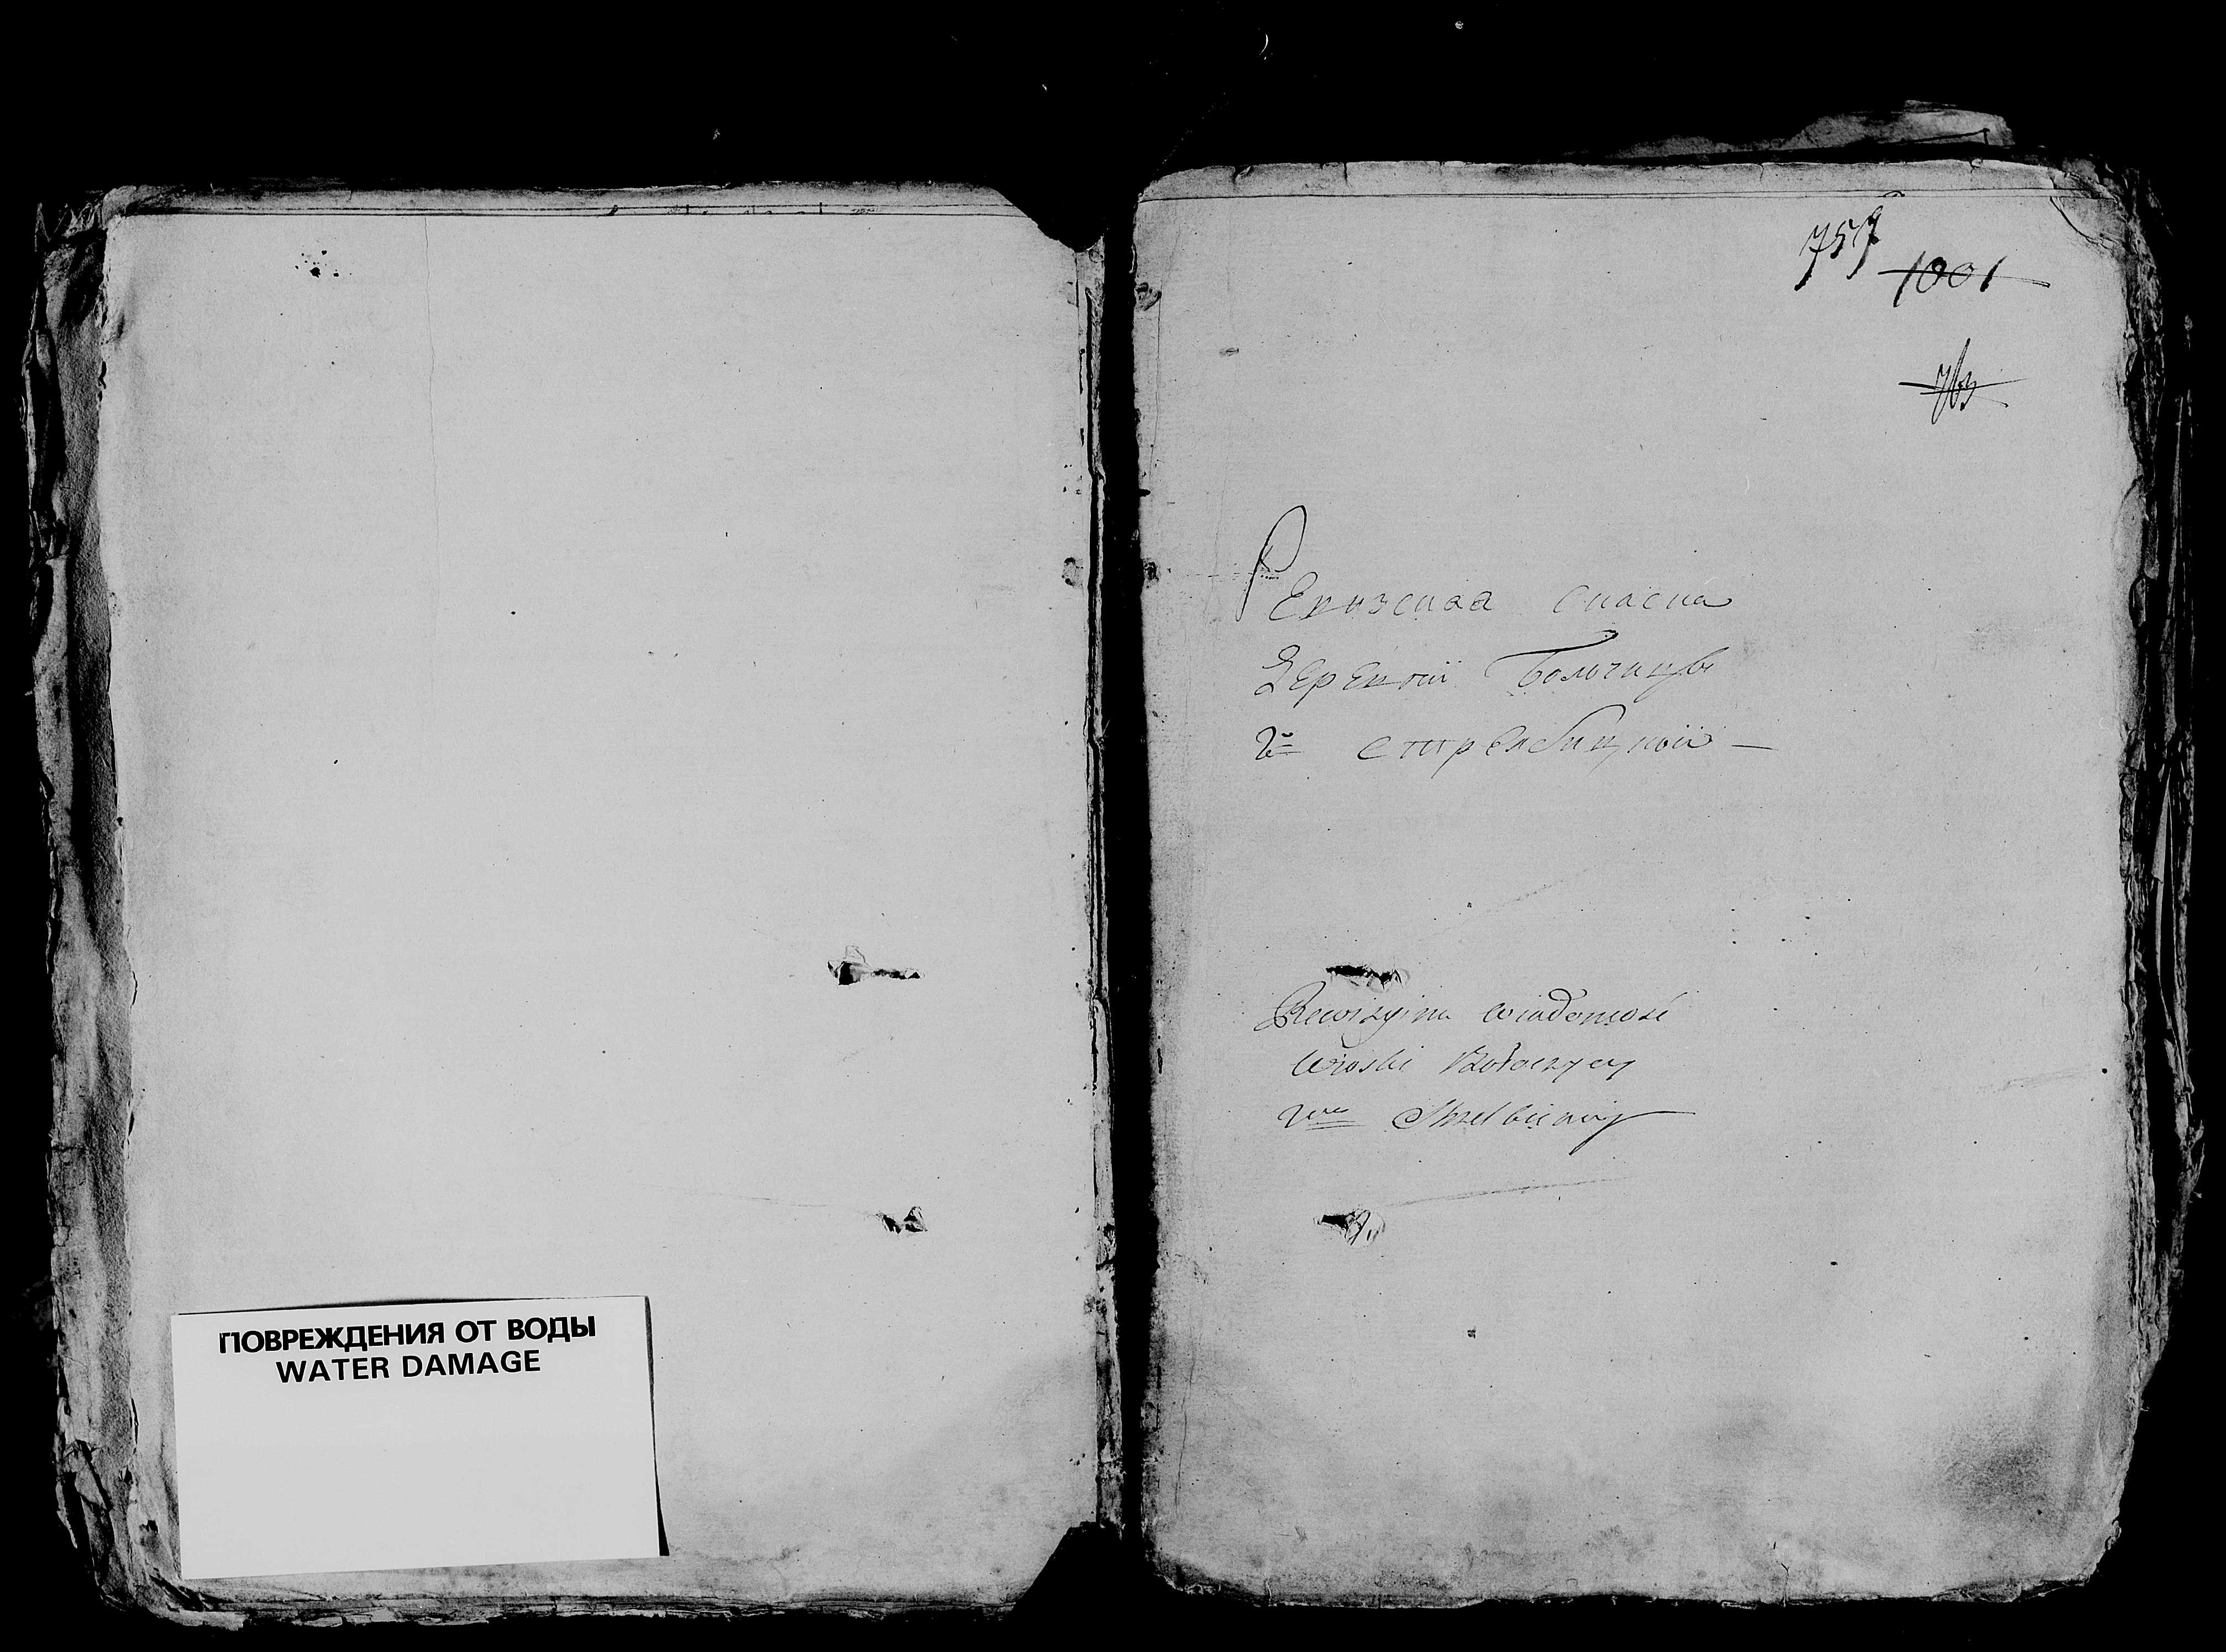 ПОВРЕЖДЕНИЯ ОТ ВОДЫ
WATER DAMAGE
757
1001
763
Ревизская сказка
Деревни
Стрельбицкой
Rewizyjna wiadomość
wioski Bołoczycy
Strelbickiej